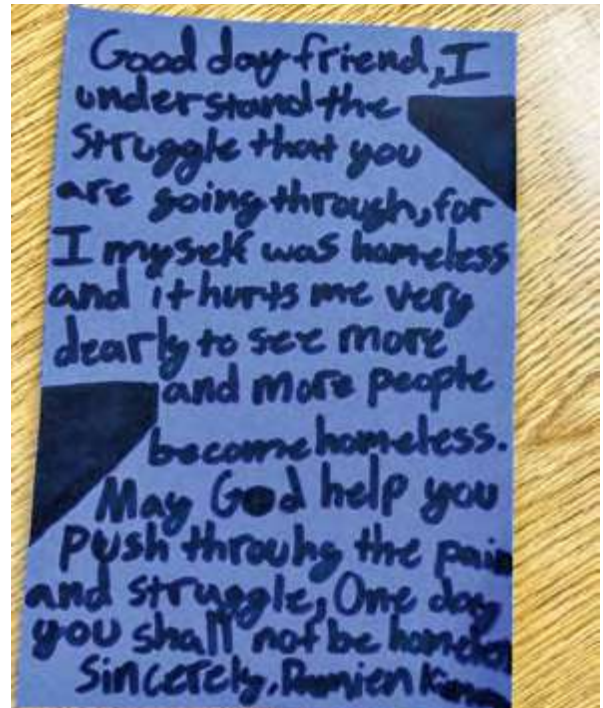 Good day friend, I
understand the
struggle that you
are going through, for
I myself was homeless
and it hurts me very
dearly to see more
and more people
become homeless.
May God help you
push throuhg the pain
and struggle, One day
you shall not be homeless
Sincerely, Damien